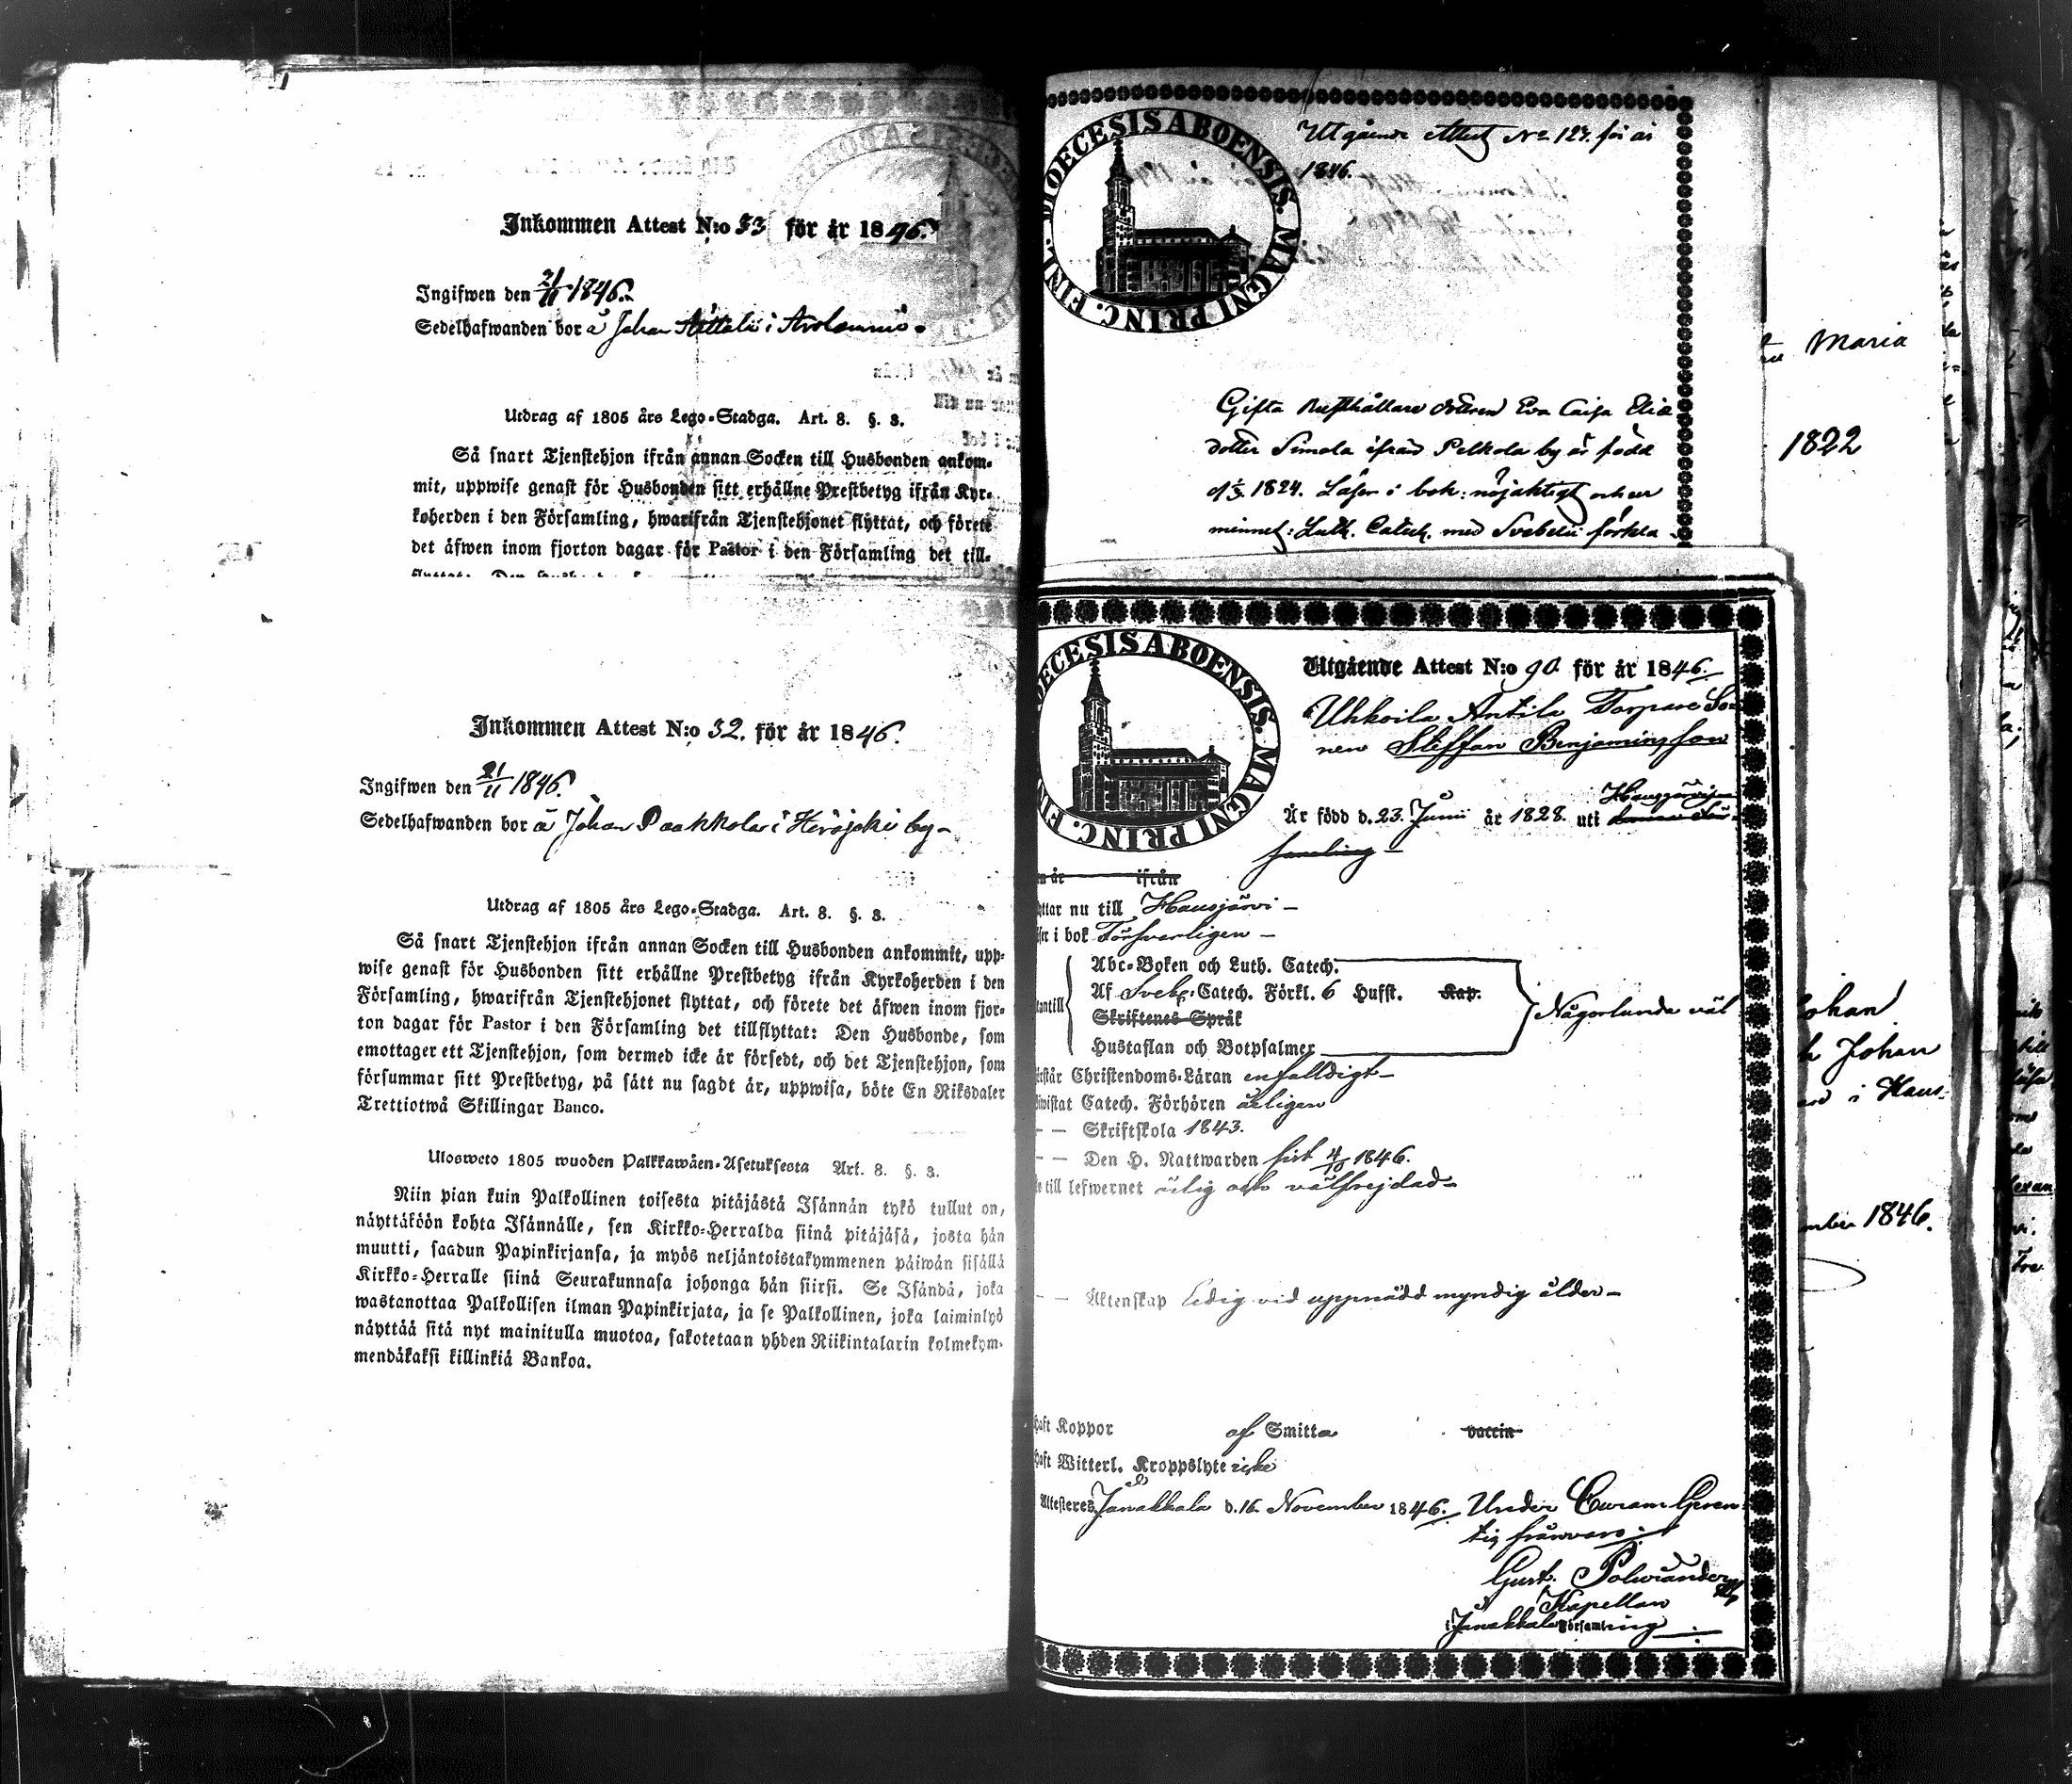 Inkommen Attest N:o 33 för år 1846.
Ingifwen den 21/11 1846.
Sedelhafwanden bor å Johan
Utdrag af 1805 års Lego-Stadga. Art. 8. §. 3.
Så snart Tjenstehjon ifrån annan Socken till Husbonden ankom-
mit, uppwise genast för Husbonden sitt erhållne Prestbetyg ifrån Kyr-
koherden i den Församling, hwarifrån Tjenstehjonet flyttat, och förete
det äfwen inom fjorton dagar för Pastor i den Församling det till-
Inkommen Attest N:o 32. för år 1846.
Ingifwen den 21/11 1846.
Sedelhafwanden bor å Johan Paakkola i Herajoki by
Utdrag af 1805 års Lego-Stadga. Art. 8. §. 3.
Så snart Tjenstehjon ifrån annan Socken till Husbonden ankommit, upp-
wise genast för Husbonden sitt erhållne Prestbetyg ifrån Kyrkoherden i den
Församling, hwarifrån Tjenstehjonet flyttat, och förete det äfwen inom fjor-
ton dagar för Pastor i den Församling det tillflyttat: Den Husbonde, som
emottager ett Tjenstehjon, som dermed icke är försedt, och det Tjenstehjon, som
försummar sitt Prestbetyg, på sätt nu sagdt är, uppwisa, böte En Riksdaler
Trettiotwå Skillingar Banco.
Ulosweto 1805 wuoden Palkkawäen-Asetuksesta Art. 8. §. 3.
Niin pian kuin Palkollinen toisesta pitäjästä Isännän tykö tullut on,
näyttäköön kohta Isännälle, sen Kirkko-Herralda siinä pitäjäsä, josta hän
muutti, saadun Papinkirjansa, ja myös neljäntoistakymmenen päiwän sisällä
Kirkko-Herralle siinä Seurakunnasa johonga hän siirsi. Se Isändä, joka
wastanottaa Palkollisen ilman Papinkirjata, ja se Palkollinen, joka laiminlyö
näyttää sitä nyt mainitulla muotoa, sakotetaan yhden Riikintalarin kolmekym-
mendäkaksi killinkiä Bankoa.
DIOECESIS ABOENSIS. MAGNI PRINC. FINL.
Utgående Attest No 127. för år
1846.
Gifta Rusthållare dottren Eva Caisa Elia
dotter Simola ifrån Pelkola by är född
d 1824. Läser i bok: nöjaktigt och ur
minnet: Luth. Catech. med Svebelii förkla
DECESIS ABOENSIS. MAGNI PRINC. FIN
Utgående Attest N:o 90 för år 1846.
Uhkoila Antila Torpare So-
nen Steffan Benjaminsson
Är född d. 23. Junii år 1828. uti Hausjärvi
samling
n år ifrån
yttar nu till Hausjärvi
äser i bok Försvarligen
Abc-Boken och Luth. Catech.
Af Sveb. Catech. Förkl. 6 Hufst. Kap.
Skriftenes Språk
Hustaflan och Botpsalmer
Någorlunda väl
Christendoms-Läran enfaldigt
Catech. Förhören årligen
Skriftskola 1843.
Den H. Nattwarden sist 4/10 1846.
till lefwernet ärlig och välfrejdad
Äktenskap Ledig vid uppnådd myndig ålder
haft Koppor af Smitta vaccin
haft Witterl. Kroppslyte icke
Attesteres Janakkala d. 16. November 1846. Under Curam Geren-
tis frånvaro:
Gust. Polviander
Kapellan
i Janakkala Församling
Maria
1822
Johan
Johan
i Haus-
mber 1846.